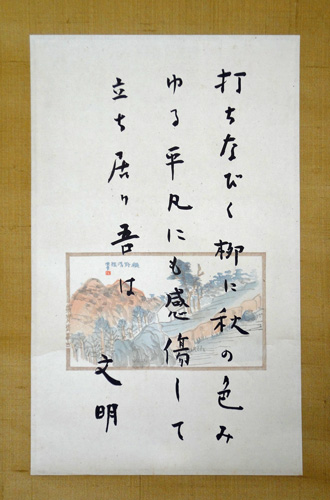 打ちなびく柳に秋の色み
ゆる平凡にも感傷して
立ち居り吾は
文明